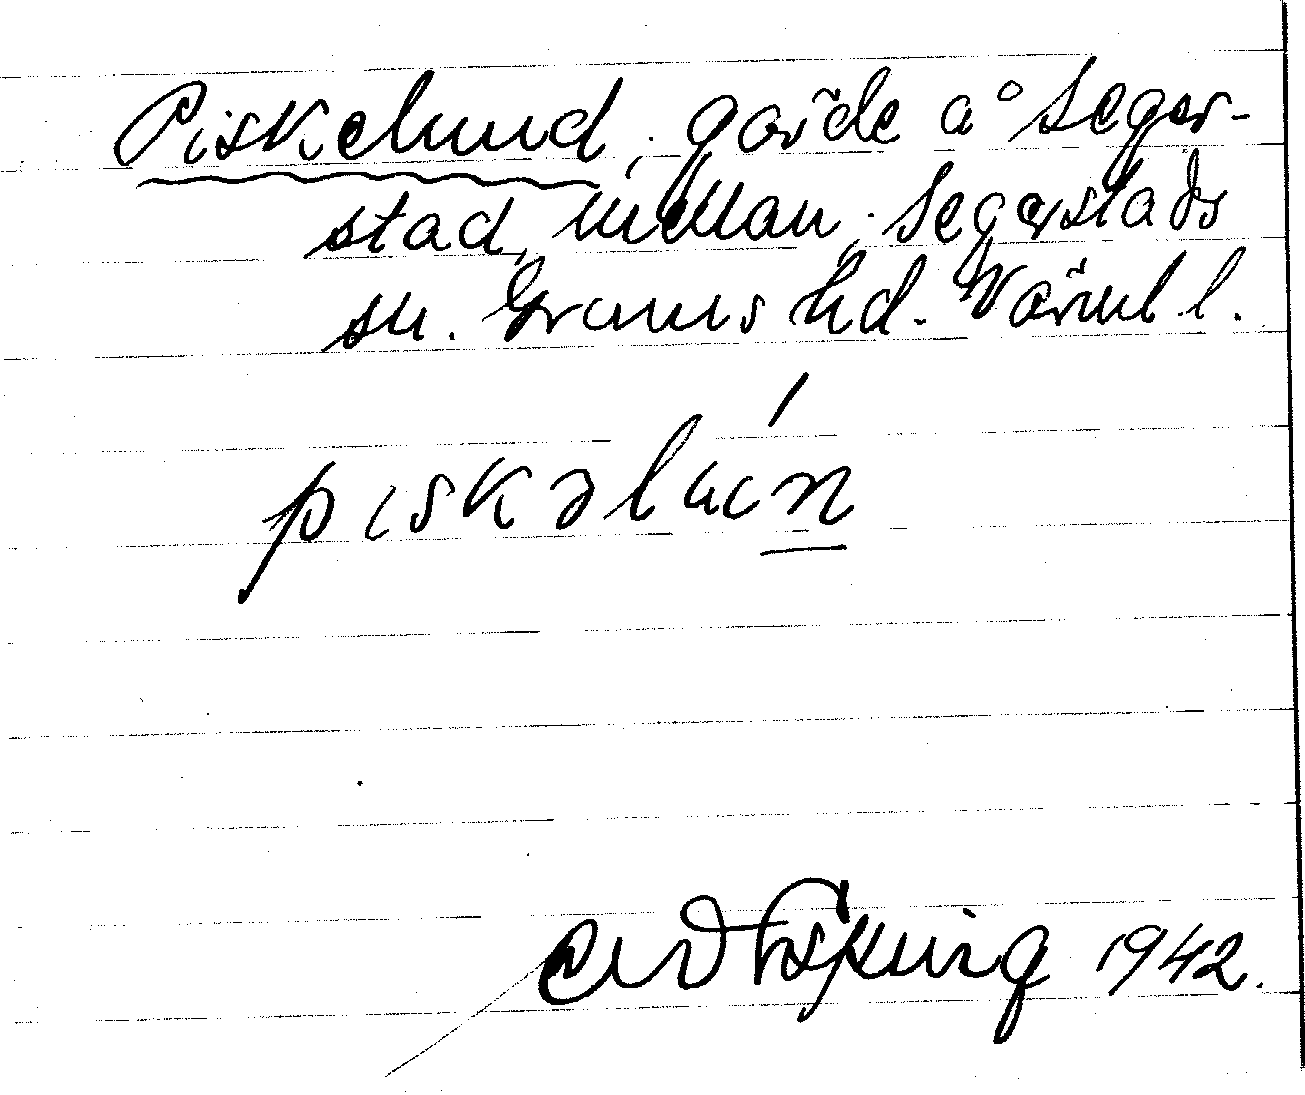 Piskelund, gärde å Seger-
stad, mellan, Segerstads
sn. Grums hd. Värml l.
piskəlún
1942.